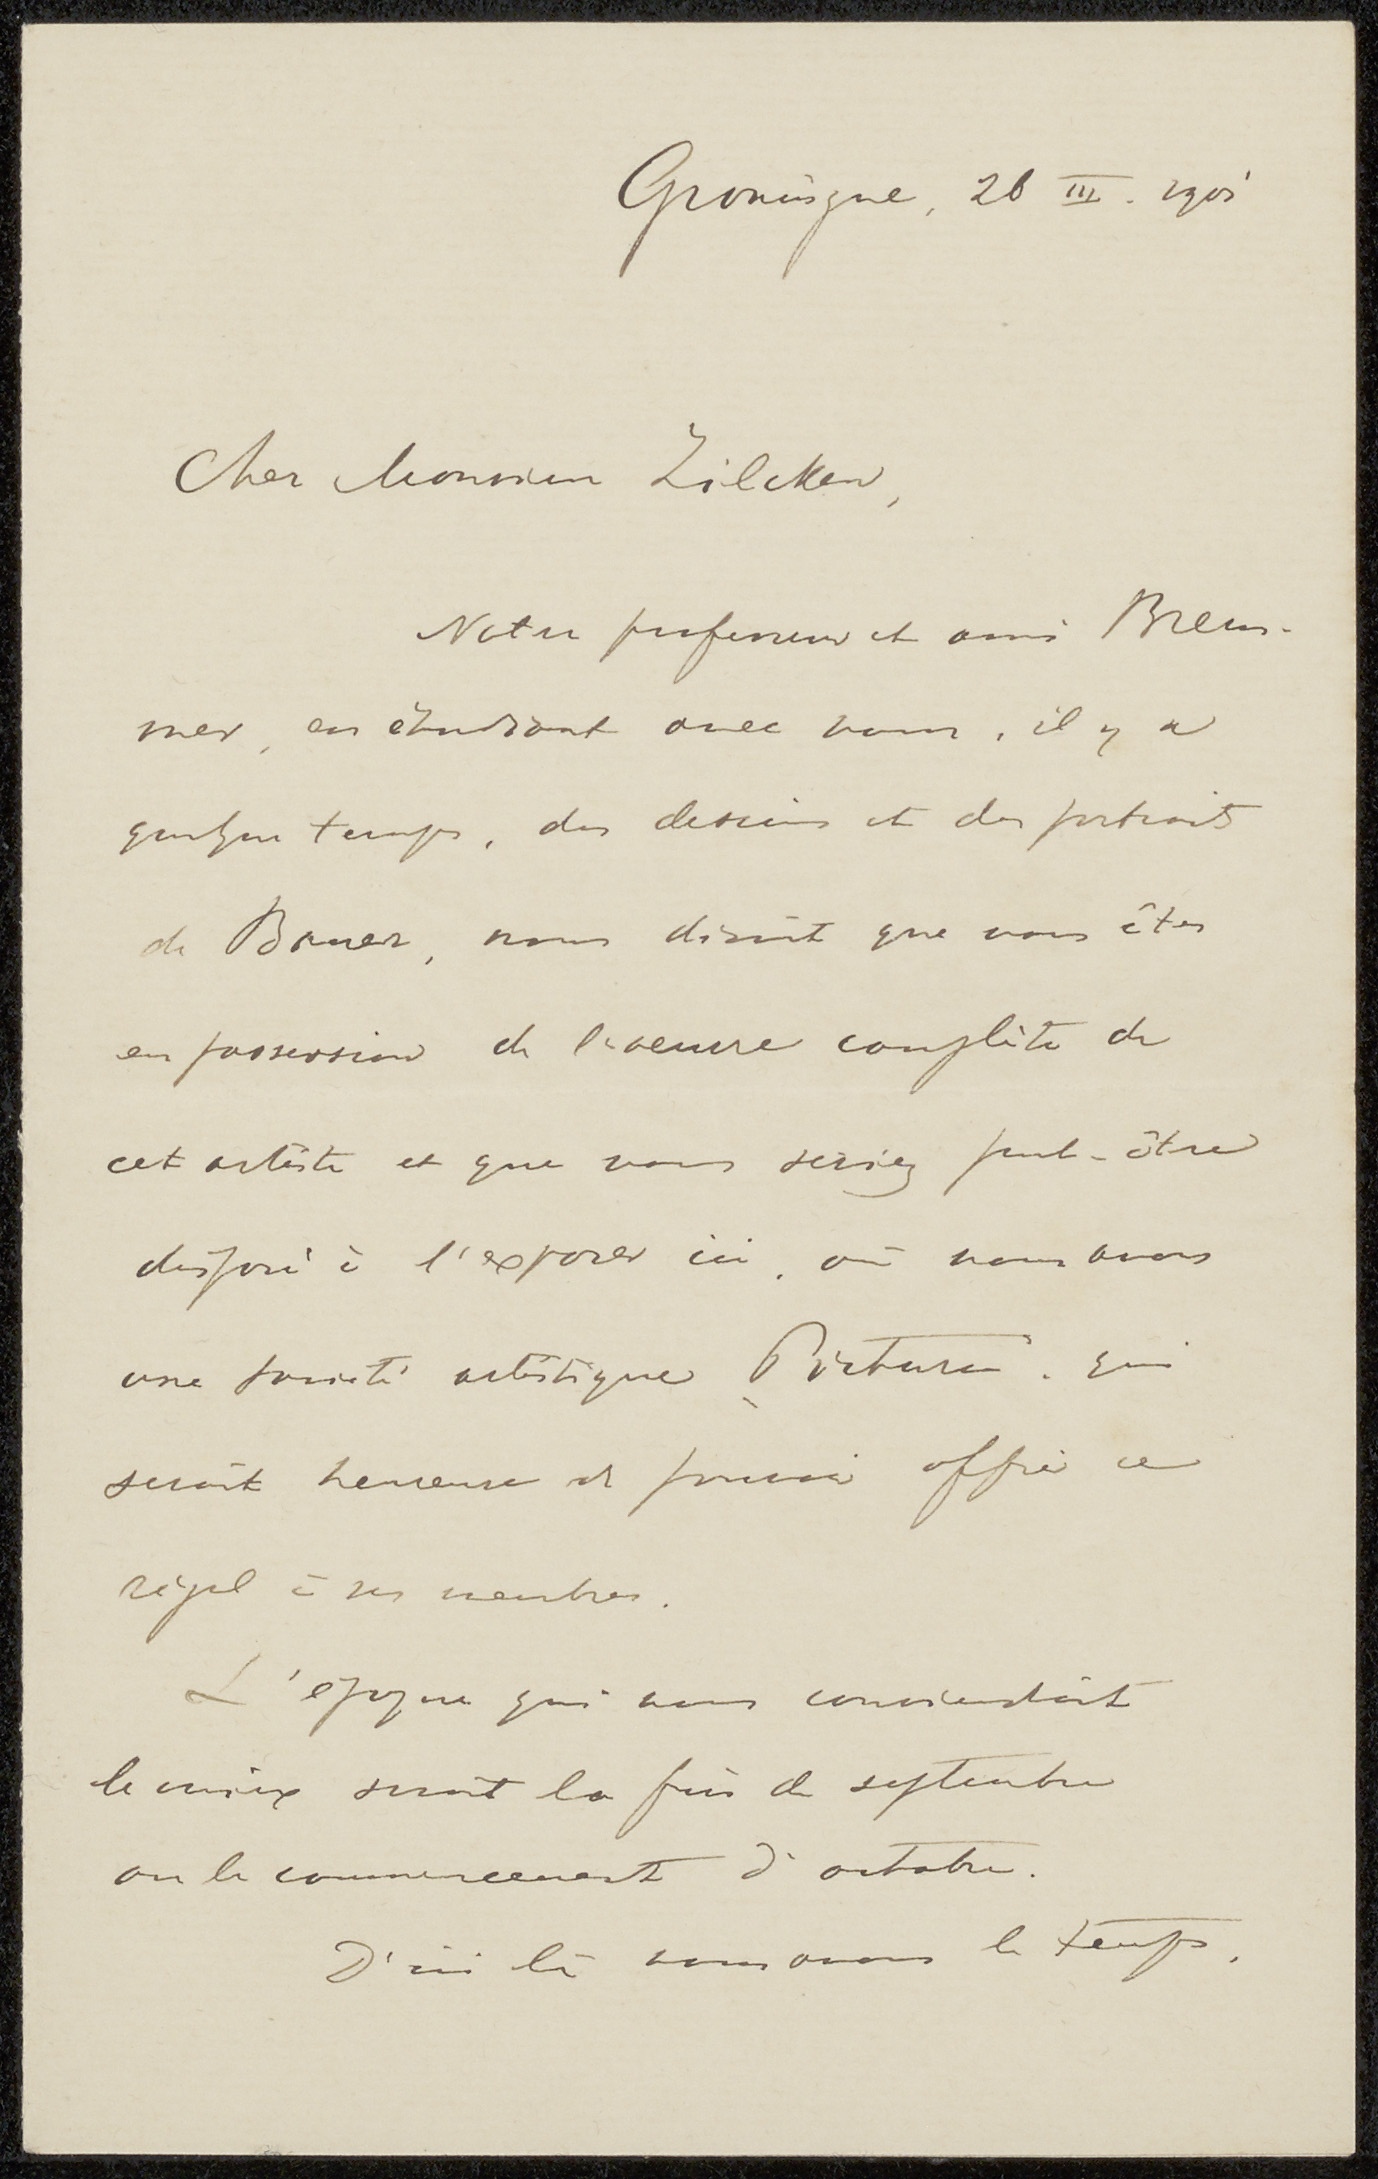 Groningue, 26 III. 1905
Cher Monsieur Zilcken,
Notre professeur et ami Brem-
mer, en étudiant avec nous, il y a
quelque temps, des dessins et des portraits
de Bauer, nous disait que vous êtes
en possession de l'oeuvre complète de
cet artiste et que vous seriez peut-être
disposé à l'exposer ici, où nous avons
une société artistique Pictura, qui
serait heureuse de pouvoir offrir ce
régal à ses membres.
L'époque qui nous conviendrait
le mieux serait la fin de septembre
ou le commencement d'octobre.
D'ici là nous avons le temps.